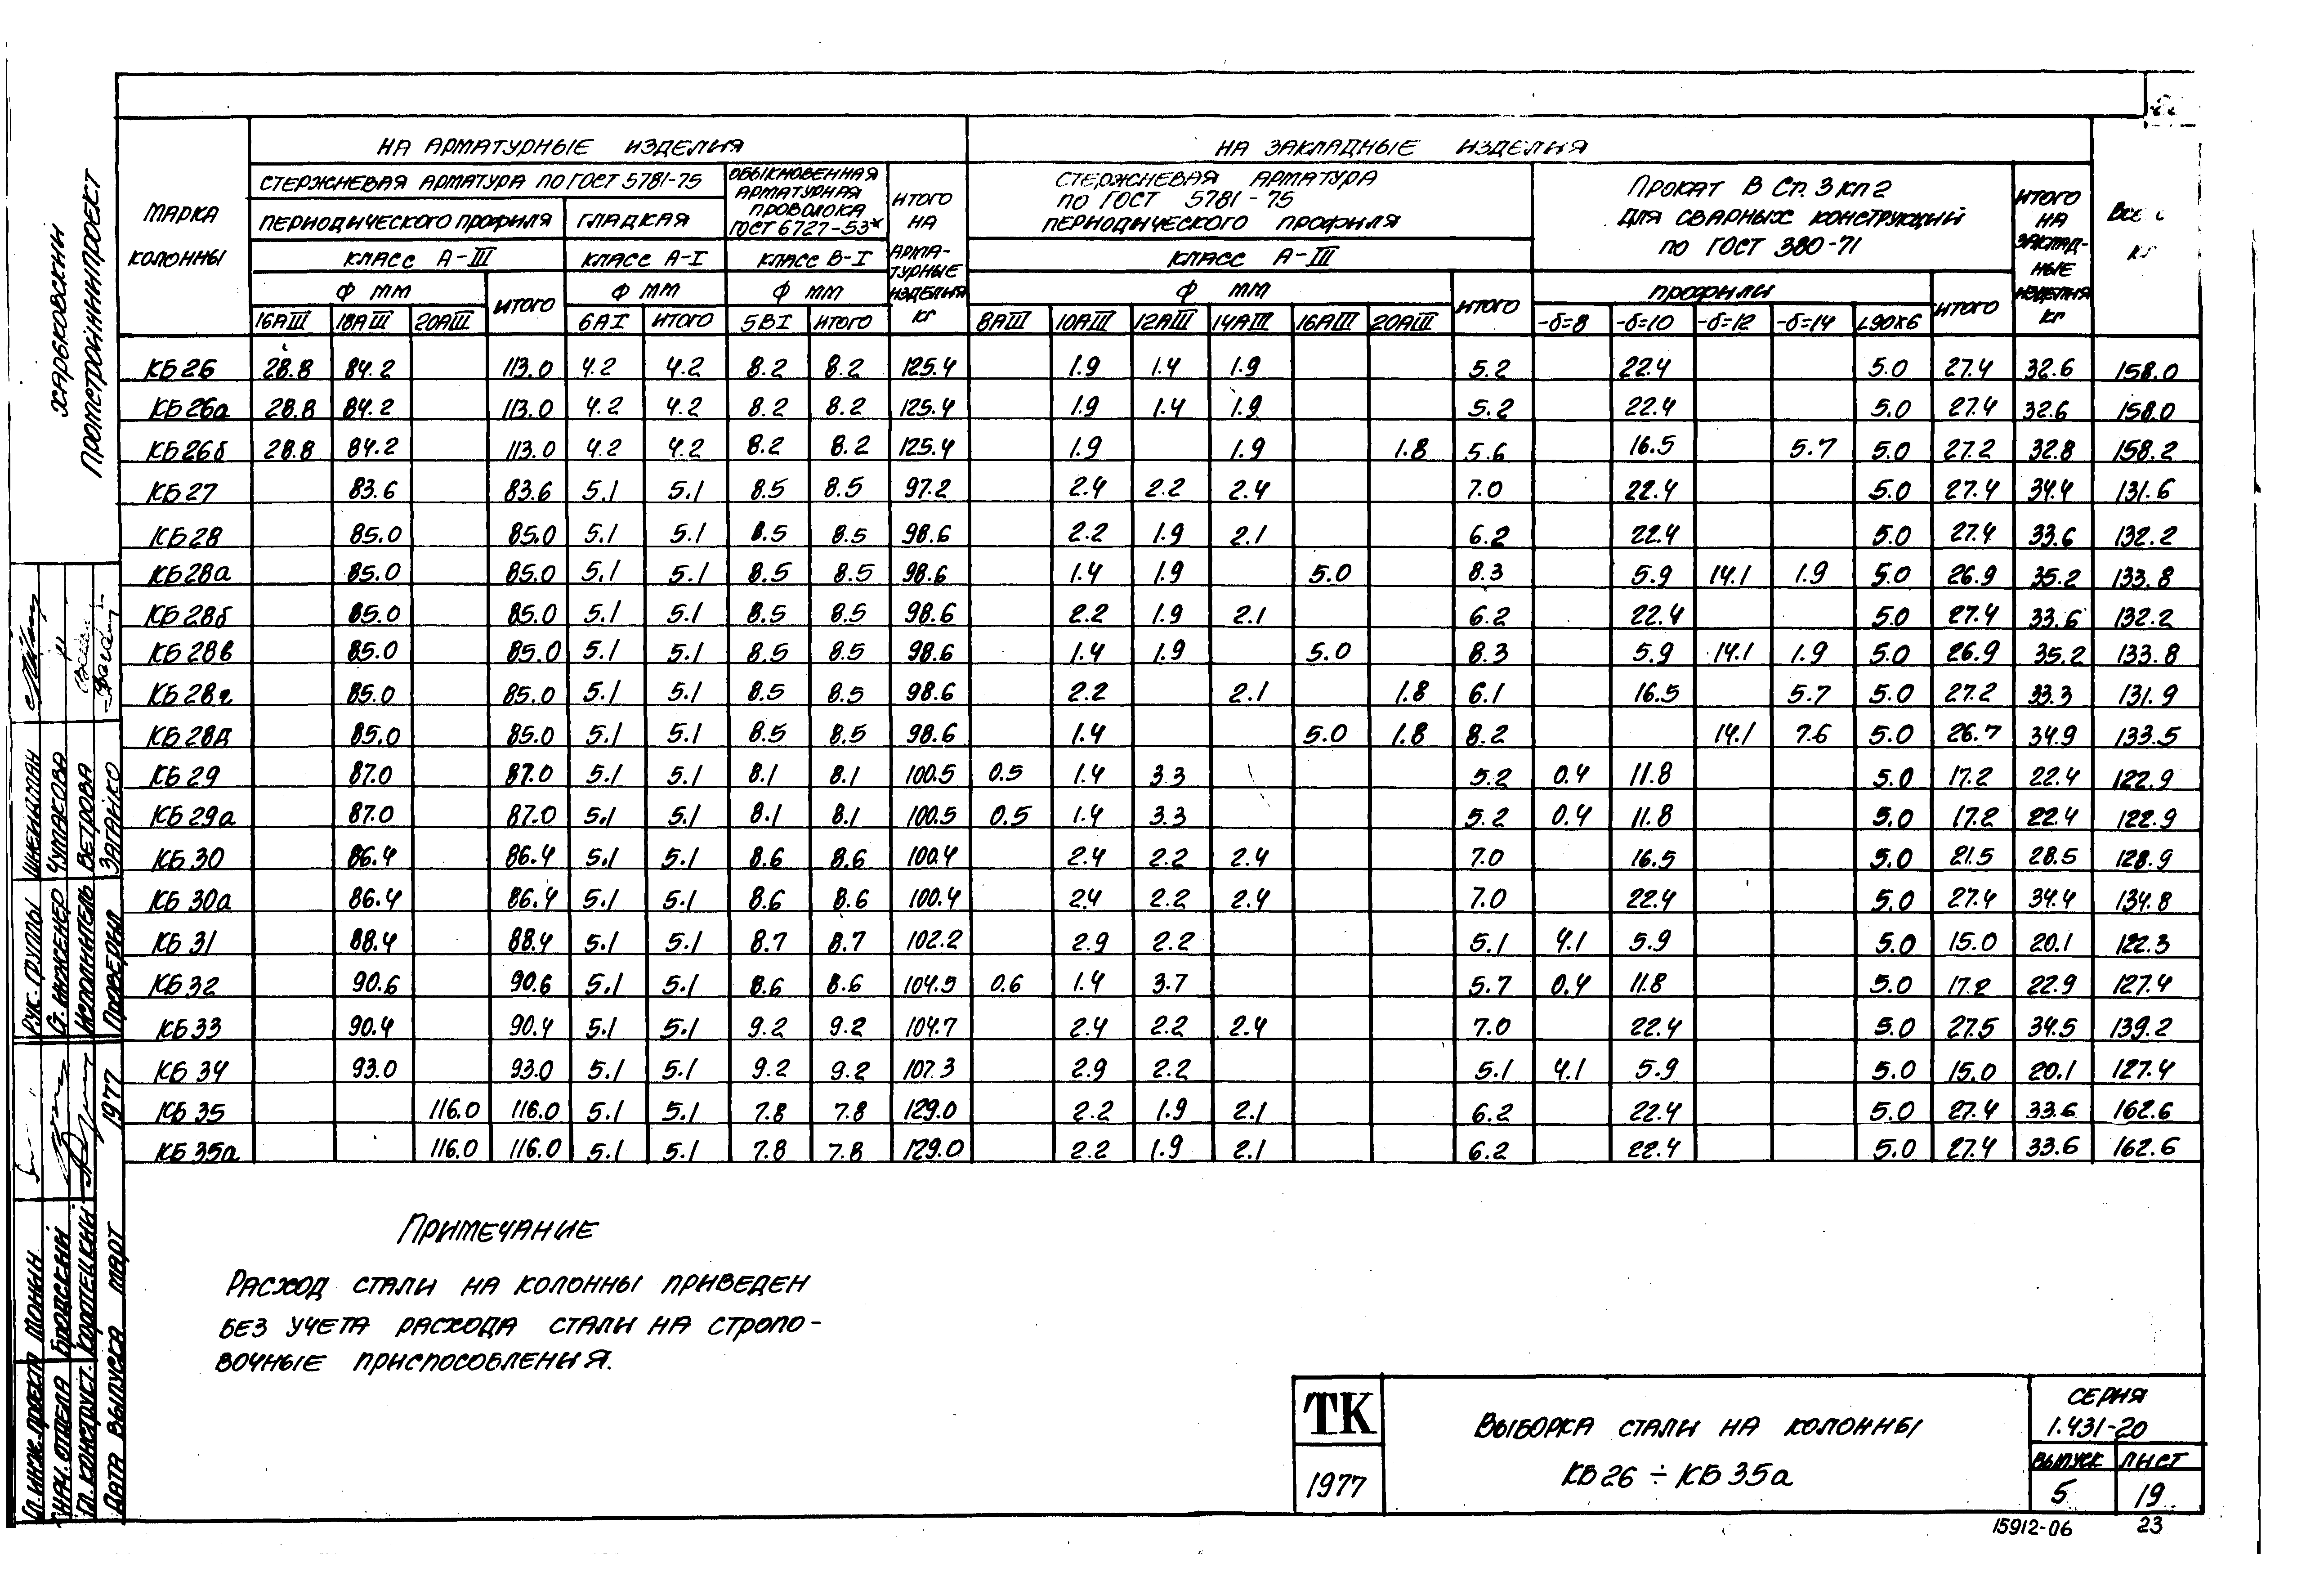 НА АРМАТУРНЫЕ ИЗДЕЛИЯ НА ЗАКЛАДНЫЕ ИЗДЕЛИЯ
МАРКА КОЛОННЫ
СТЕРЖНЕВАЯ АРМАТУРА ПО ГОСТ 5781-75
ПЕРИОДИЧЕСКОГО ПРОФИЛЯ ГЛАДКАЯ
КЛАСС А-III КЛАСС А-I
ОБЫКНОВЕННАЯ
АРМАТУРНАЯ
ПРОВОЛОКА
ГОСТ 6727-53*
КЛАСС В-I
ИТОГО
НА
АРМА-
ТУРНЫЕ
ИЗДЕЛИЯ
КГ
СТЕРЖНЕВАЯ АРМАТУРА
ПО ГОСТ 5781-75
ПЕРИОДИЧЕСКОГО ПРОФИЛЯ
КЛАСС А-III
ПРОКАТ В Ст. 3 кп 2
ДЛЯ СВАРНЫХ КОНСТРУКЦИЙ
ПО ГОСТ 380-71
ИТОГО
НА
ЗАКЛАД-
НЫЕ
ИЗДЕЛИЯ
КГ
Ф ММ ИТОГО Ф ММ Ф ММ Ф ММ ИТОГО ПРОФИЛИ ИТОГО
16АIII 18АIII 20АIII 6АI ИТОГО 5ВI ИТОГО 8АIII 10АIII 12АIII 14АIII 16АIII 20АIII -δ=8 -δ=10 -δ=12 -δ=14 L90×6
КБ26 28.8 84.2 113.0 4.2 4.2 8.2 8.2 125.4 1.9 1.4 1.9 5.2 22.4 5.0 27.4 32.6 158.0
КБ26а 28.8 84.2 113.0 4.2 4.2 8.2 8.2 125.4 1.9 1.4 1.9 5.2 22.4 5.0 27.4 32.6 158.0
КБ26б 28.8 84.2 113.0 4.2 4.2 8.2 8.2 125.4 1.9 1.9 1.8 5.6 16.5 5.7 5.0 27.2 32.8 158.2
КБ27 83.6 83.6 5.1 5.1 8.5 8.5 97.2 2.4 2.2 2.4 7.0 22.4 5.0 27.4 34.4 131.6
КБ28 85.0 85.0 5.1 5.1 8.5 8.5 98.6 2.2 1.9 2.1 6.2 22.4 5.0 27.4 33.6 132.2
КБ28а 85.0 85.0 5.1 5.1 8.5 8.5 98.6 1.4 1.9 5.0 8.3 5.9 14.1 1.9 5.0 26.9 35.2 133.8
КБ28б 85.0 85.0 5.1 5.1 8.5 8.5 98.6 2.2 1.9 2.1 6.2 22.4 5.0 27.4 33.6 132.2
КБ28в 85.0 85.0 5.1 5.1 8.5 8.5 98.6 1.4 1.9 5.0 8.3 5.9 14.1 1.9 5.0 26.9 35.2 133.8
КБ28г 85.0 85.0 5.1 5.1 8.5 8.5 98.6 2.2 2.1 1.8 6.1 16.5 5.7 5.0 27.2 33.3 131.9
КБ28д 85.0 85.0 5.1 5.1 8.5 8.5 98.6 1.4 5.0 1.8 8.2 14.1 7.6 5.0 26.7 34.9 133.5
КБ29 87.0 87.0 5.1 5.1 8.1 8.1 100.5 0.5 1.4 3.3 5.2 0.4 11.8 5.0 17.2 22.4 122.9
КБ29а 87.0 87.0 5.1 5.1 8.1 8.1 100.5 0.5 1.4 3.3 5.2 0.4 11.8 5.0 17.2 22.4 122.9
КБ30 86.4 86.4 5.1 5.1 8.6 8.6 100.4 2.4 2.2 2.4 7.0 16.5 5.0 21.5 28.5 128.9
КБ30а 86.4 86.4 5.1 5.1 8.6 8.6 100.4 2.4 2.2 2.4 7.0 22.4 5.0 27.4 34.4 134.8
КБ31 88.4 88.4 5.1 5.1 8.7 8.7 102.2 2.9 2.2 5.1 4.1 5.9 5.0 15.0 20.1 122.3
КБ32 90.6 90.6 5.1 5.1 8.6 8.6 104.5 0.6 1.4 3.7 5.7 0.4 11.8 5.0 17.2 22.9 127.4
КБ33 90.4 90.4 5.1 5.1 9.2 9.2 104.7 2.4 2.2 2.4 7.0 22.4 5.0 27.5 34.5 139.2
КБ34 93.0 93.0 5.1 5.1 9.2 9.2 107.3 2.9 2.2 5.1 4.1 5.9 5.0 15.0 20.1 127.4
КБ35 116.0 116.0 5.1 5.1 7.8 7.8 129.0 2.2 1.9 2.1 6.2 22.4 5.0 27.4 33.6 162.6
КБ35а 116.0 116.0 5.1 5.1 7.8 7.8 129.0 2.2 1.9 2.1 6.2 22.4 5.0 27.4 33.6 162.6
ПРИМЕЧАНИЕ
РАСХОД СТАЛИ НА КОЛОННЫ ПРИВЕДЕН
БЕЗ УЧЕТА РАСХОДА СТАЛИ НА СТРОПО-
ВОЧНЫЕ ПРИСПОСОБЛЕНИЯ.
ТК
1977
ВЫБОРКА СТАЛИ НА КОЛОННЫ
КБ26 ÷ КБ35а
СЕРИЯ
1.431-20
ВЫПУСК ЛИСТ
5 19
15912-06 23
ХАРЬКОВСКИЙ
ПРОМСТРОЙНИИПРОЕКТ
РУК. ГРУППЫ ШНЕЙДМАН
СТ. ИНЖЕНЕР ЧУМАКОВА
ИСПОЛНИТЕЛЬ ВЕТРОВА
ПРОВЕРИЛ
ГЛ. ИНЖ. ПР-ЕКТА МОНИН
НАЧ. ОТДЕЛА БРОДСКИЙ
ГЛ. КОНСТРУКТ. КОРОТЕЦКИЙ
ДАТА ВЫПУСКА МАРТ 1977